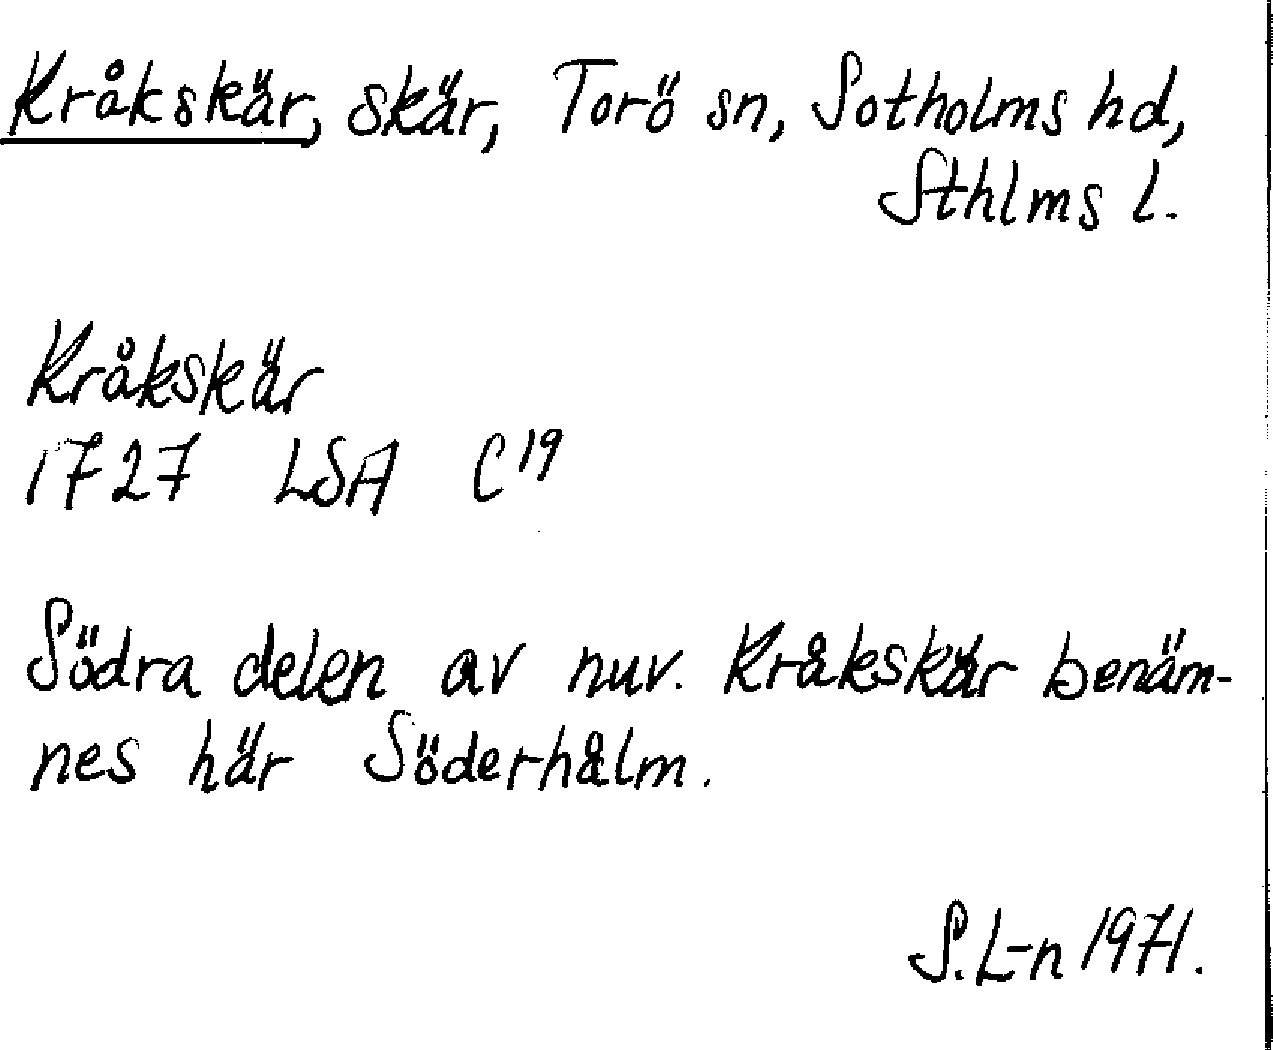 Kråkskär, skär, Torö sn, Sotholms hd,
Sthlms l.
Kråkskär
1727 LSA C19
Södra delen av nuv. Kråkskär benäm-
nes här Söderhålm.
S. L-n 1971.